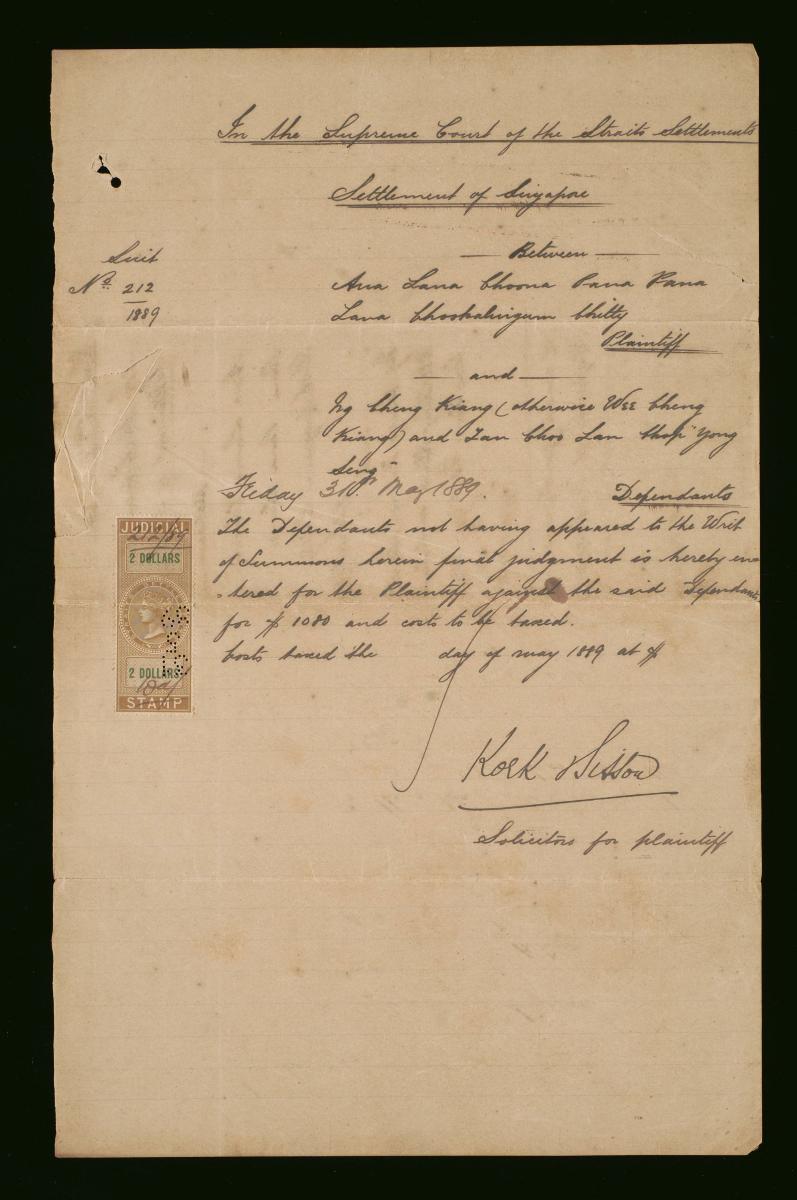 In the Supreme Court of the Straits Settlements
Settlement of Singapore
Between
Suit
No. 212
1889
Ana Lana Choona Pana Pana
Lana Chookalingum Chitty
Plaintiff
and
Ng Cheng Kiang (otherwise Wee Cheng
Kiang) and Tan Choo Lan Chop "Yong
Seng"
Friday 31st May 1889.
Defendants
The Defendants not having appeared to the Writ
of Summons herein final judgment is hereby en
-tered for the Plaintiff against the said Defendants
for $ 1080 and costs to be taxed.
Costs taxed the day of may 1889 at $
JUDICIAL
212/89
2 DOLLARS
2 DOLLARS
STAMP
Solicitors for plaintiff